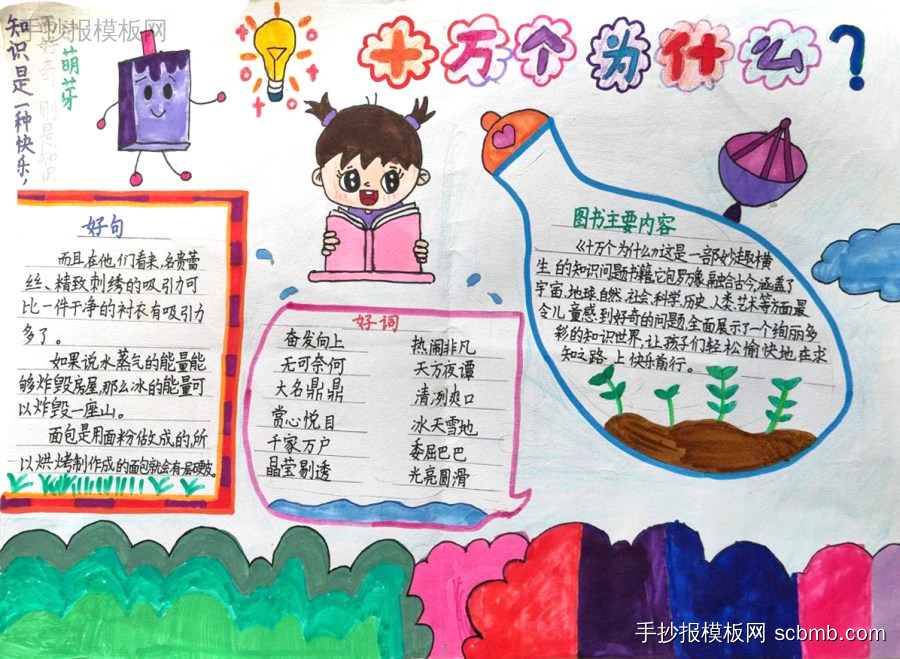 手抄报模板网
知识是一种快乐，
好奇则是知识
萌芽
十万个为什么？
好句
而且,在他们看来,名贵蕾
丝、精致刺绣的吸引力可
比一件干净的衬衣有吸引力
多了。
如果说水蒸气的能量能
够炸毁房屋,那么冰的能量可
以炸毁一座山。
面包是用面粉做成的,所
以烘烤制作成的面包就会有层硬皮。
好词
奋发向上 热闹非凡
无可奈何 天方夜谭
大名鼎鼎 清冽爽口
赏心悦目 冰天雪地
千家万户 委屈巴巴
晶莹剔透 光亮圆滑
图书主要内容
《十万个为什么》这是一部妙趣横
生的知识问题书籍,它包罗万象,融合古今,涵盖了
宇宙、地球、自然、社会、科学、历史、人类、艺术等方面最
令儿童感到好奇的问题,全面展示了一个绚丽多
彩的知识世界,让孩子们轻松愉快地在求
知之路上快乐前行。
手抄报模板网 scbmb.com